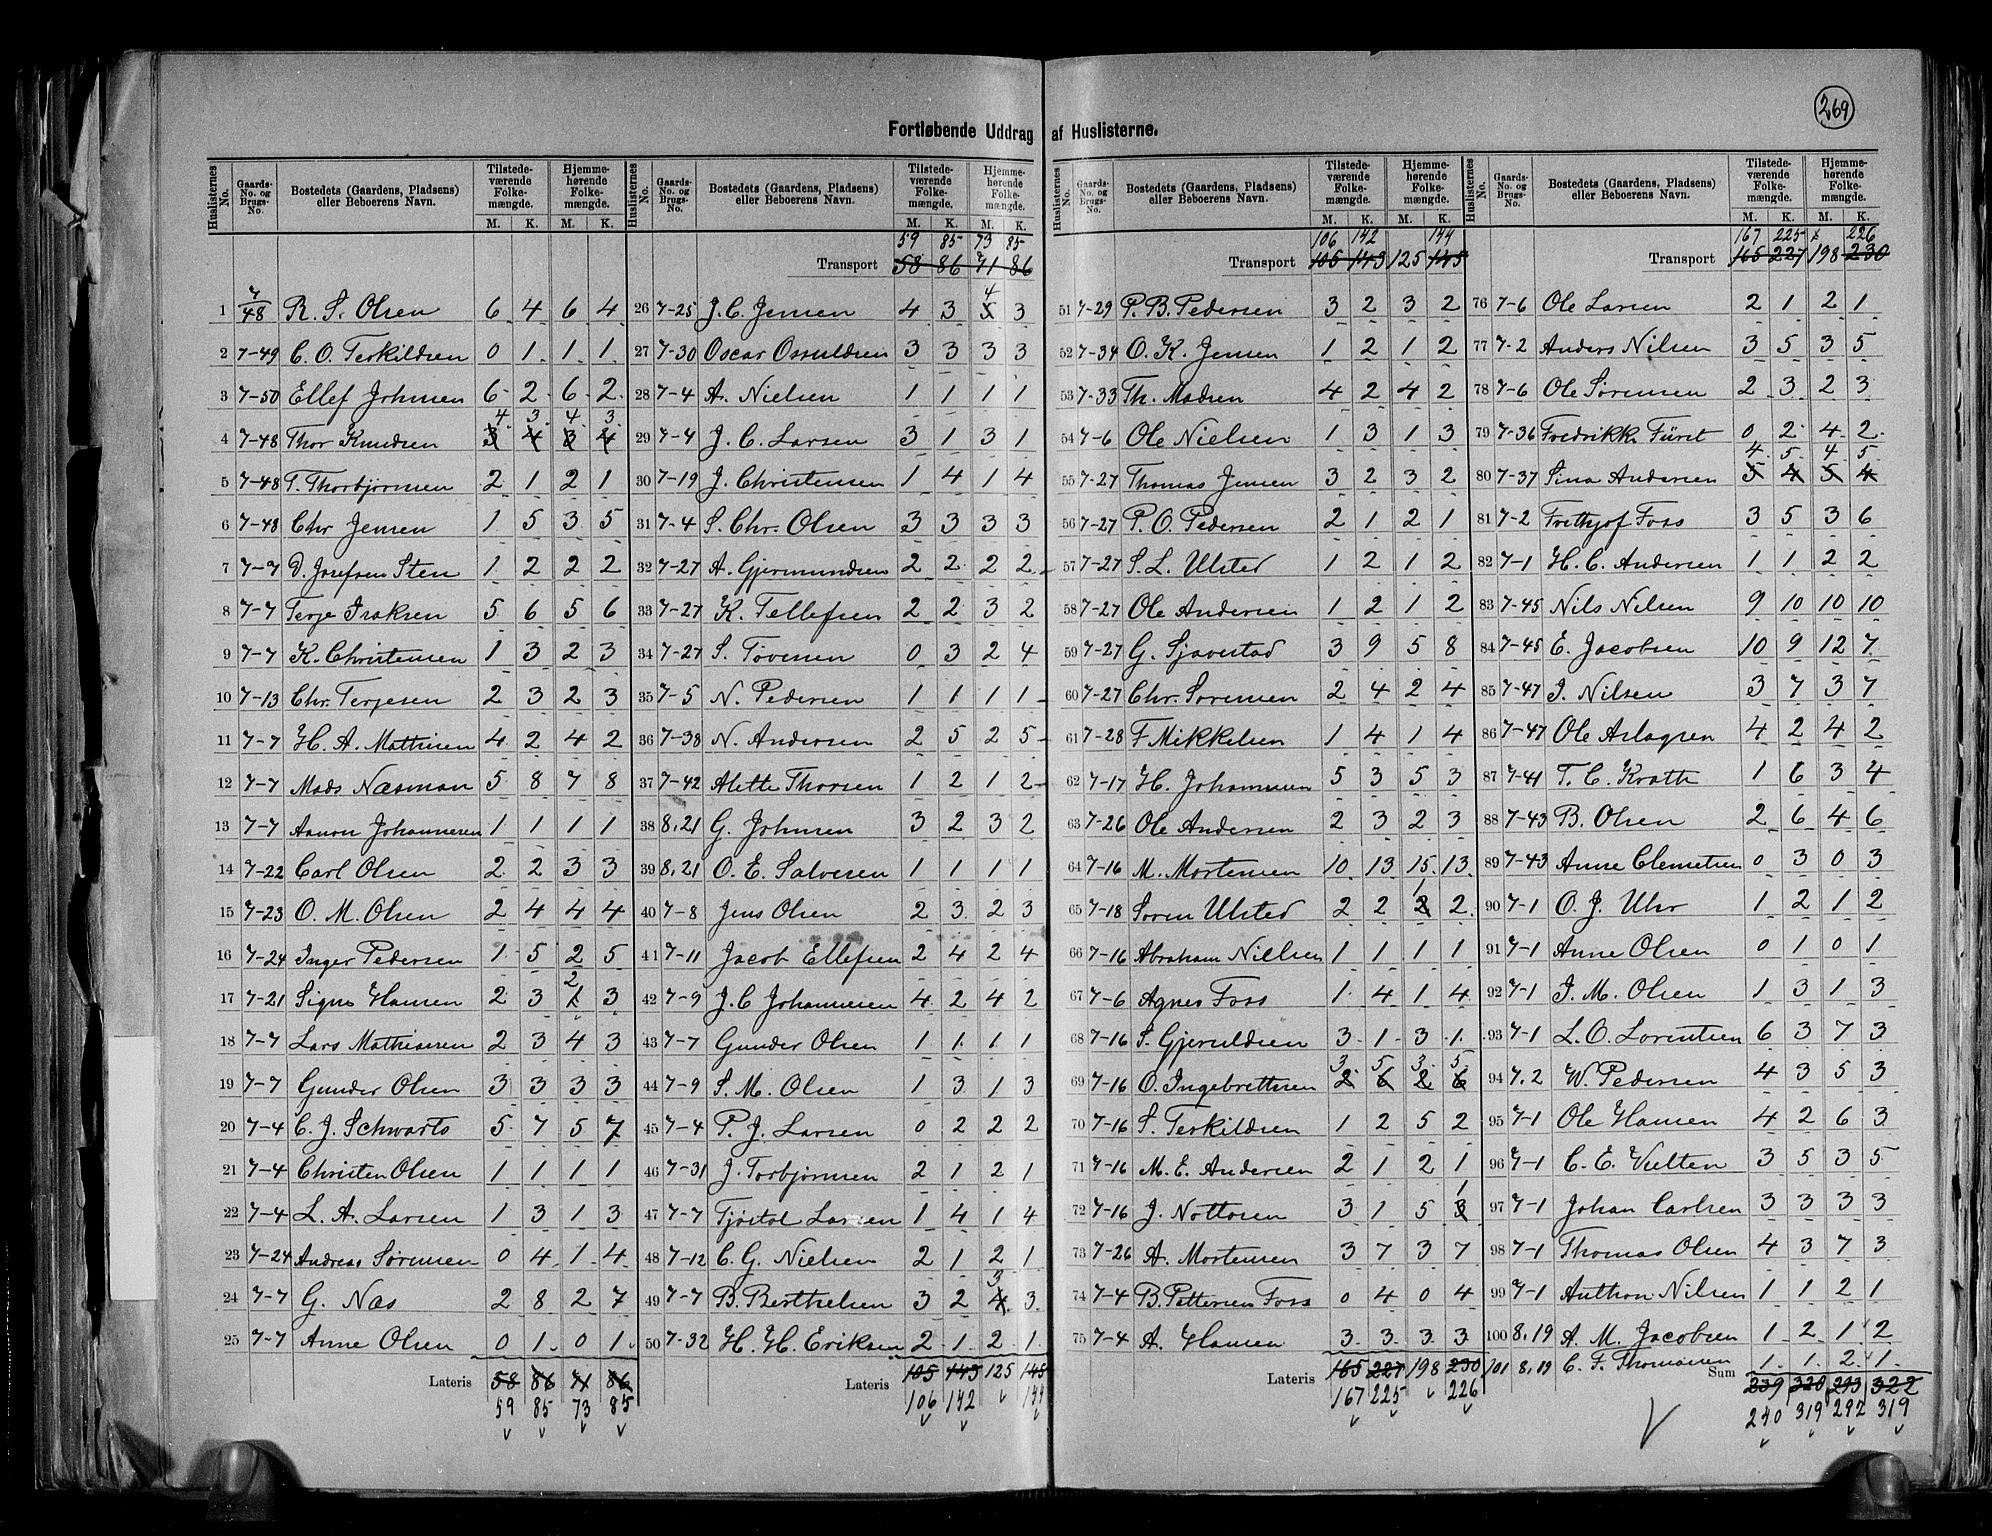 269
Fortløbende Uddrag af Huslisterne.
Huslisternes No. Gaards-No. og Brugs-No. Bostedets (Gaardens, Pladsens) eller Beboerens Navn. Tilstedeværende Folkemængde. M. K. Hjemmehørende Folkemængde. M. K.
1 7/48 R. S. Olsen 6 4 6 4
2 7-49 C. O. Terkildsen 0 1 1 1
3 7-50 Ellef Johnsen 6 2 6 2
4 3 4 3
4 7-48 Thor Knudsen 3 4 3 4
5 7-48 T. Thorbjørnsen 2 1 2 1
6 7-48 Chr Jensen 1 5 3 5
7 7-7 D. Josefsen Sten 1 2 2 2
8 7-7 Terje Isaksen 5 6 5 6
9 7-7 K. Christensen 1 3 2 3
10 7-13 Chr. Terjesen 2 3 2 3
11 7-7 H. A. Mathisen 4 2 4 2
12 7-7 Mads Næsman 5 8 7 8
13 7-7 Aanon Johannesen 1 1 1 1
14 7-22 Carl Olsen 2 2 3 3
15 7-23 O. M. Olsen 2 4 4 4
16 7-24 Inger Pedersen 1 5 2 5
2
17 7-21 Signe Hansen 2 3 1 3
18 7-7 Lars Mathiasen 2 3 4 3
19 7-7 Gunder Olsen 3 3 3 3
20 7-4 C. J. Schwarts 5 7 5 7
21 7-4 Christen Olsen 1 1 1 1
22 7-4 L. A. Larsen 1 3 1 3
23 7-24 Andreas Sørensen 0 4 1 4
24 7-7 G. Næs 2 8 2 7
25 7-7 Anne Olsen 0 1 0 1
Lateris 58 86 71 86
59 85 73 85
Huslisternes No. Gaards-No. og Brugs-No. Bostedets (Gaardens, Pladsens) eller Beboerens Navn. Tilstedeværende Folkemængde. M. K. Hjemmehørende Folkemængde. M. K.
59 85 73 85
Transport 58 86 71 86
4
26 7-25 J. C. Jensen 4 3 3 3
27 7-30 Oscar Osuldsen 3 3 3 3
28 7-4 A. Nielsen 1 1 1 1
29 7-4 J. C. Larsen 3 1 3 1
30 7-19 J. Christensen 1 4 1 4
31 7-4 S. Chr. Olsen 3 3 3 3
32 7-27 A. Gjermundsen 2 2 2 2
33 7-27 K. Tellefsen 2 2 3 2
34 7-27 S. Tøvesen 0 3 2 4
35 7-5 N. Pedersen 1 1 1 1
36 7-38 N. Andersen 2 5 2 5
37 7-42 Alette Thorsen 1 2 1 2
38 8,21 G. Johnsen 3 2 3 2
39 8,21 O. E. Salvesen 1 1 1 1
40 7-8 Jens Olsen 2 3 2 3
41 7-11 Jacob Ellefsen 2 4 2 4
42 7-9 J. C Johannesen 4 2 4 2
43 7-7 Gunder Olsen 1 1 1 1
44 7-9 S. M. Olsen 1 3 1 3
45 7-4 P. J. Larsen 0 2 2 2
46 7-31 J. Torbjørnsen 2 1 2 1
47 7-7 Tjøstol Larsen 1 4 1 4
48 7-12 C. G. Nielsen 2 1 2 1
3
49 7-7 B. Berthelsen 3 2 4 3
50 7-32 H. H. Eriksen 2 1 2 1
Lateris 105 143 125 145
106 142 144
Huslisternes No. Gaards-No. og Brugs-No. Bostedets (Gaardens, Pladsens) eller Beboerens Navn. Tilstedeværende Folkemængde. M. K. Hjemmehørende Folkemængde. M. K.
106 142 144
Transport 105 143 125 145
51 7-29 P. B. Pedersen 3 2 3 2
52 7-34 O. K. Jensen 1 2 1 2
53 7-33 Th. Madsen 4 2 4 2
54 7-6 Ole Nielsen 1 3 1 3
55 7-27 Thomas Jensen 3 2 3 2
56 7-27 P. O. Pedersen 2 1 2 1
57 7-27 S. L. Ulsted 1 2 1 2
58 7-27 Ole Andersen 1 2 1 2
59 7-27 G. Sjavestad 3 9 5 8
60 7-27 Chr. Sørensen 2 4 2 4
61 7-28 F Mikkelsen 1 4 1 4
62 7-17 H. Johannesen 5 3 5 3
63 7-26 Ole Andersen 2 3 2 3
64 7-16 M. Mortensen 10 13 15 13
1
65 7-18 Søren Ulsted 2 2 2 2
66 7-16 Abraham Nielsen 1 1 1 1
67 7-6 Agnes Foss 1 4 1 4
68 7-16 S. Gjeruldsen 3 1 3 1
3 5 3 5
69 7-16 O. Ingebrettsen 2 6 2 6
70 7-16 S. Terkildsen 1 2 5 2
71 7-16 M. E. Andersen 2 1 2 1
1
72 7-16 J. Nottosen 3 1 5 3
73 7-26 A. Mortensen 3 7 3 7
74 7-4 B. Pettersen Foss 0 4 0 4
75 7-4 A. Hansen 3 3 3 3
Lateris 165 227 198 230
167 225 226
Huslisternes No. Gaards-No. og Brugs-No. Bostedets (Gaardens, Pladsens) eller Beboerens Navn. Tilstedeværende Folkemængde. M. K. Hjemmehørende Folkemængde. M. K.
167 225 226
Transport 165 227 198 230
76 7-6 Ole Larsen 2 1 2 1
77 7-2 Anders Nilsen 3 5 3 5
78 7-6 Ole Sørensen 2 3 2 3
79 7-36 Fredrikke Fürst 0 2 4 2
4 5 4 5
80 7-37 Sina Andersen 5 4 5 4
81 7-2 Frithjof Foss 3 5 3 6
82 7-1 H. C. Andersen 1 1 2 2
83 7-45 Nils Nilsen 9 10 10 10
84 7-45 E. Jacobsen 10 9 12 7
85 7-47 J. Nilsen 3 7 3 7
86 7-47 Ole Aslagsen 4 2 4 2
87 7-41 T. C. Kratte 1 6 3 4
88 7-43 B. Olsen 2 6 4 6
89 7-43 Anne Clemetsen 0 3 0 3
90 7-1 O. J. Uhr 1 2 1 2
91 7-1 Anne Olsen 0 1 0 1
92 7-1 J. M. Olsen 1 3 1 3
93 7-1 L. O. Lorentsen 6 3 7 3
94 7.2 W. Pedersen 4 3 5 3
95 7-1 Ole Hansen 4 2 6 3
96 7-1 C. E. Vielten 3 5 3 5
97 7-1 Johan Carlsen 3 3 3 3
98 7-1 Thomas Olsen 4 3 7 3
99 7-1 Anthon Nilsen 1 1 2 1
100 8,19 A. M. Jacobsen 1 2 1 2
101 8,19 C. F. Thomassen 1 1 2 1
Sum 239 320 293 322
240 319 292 319